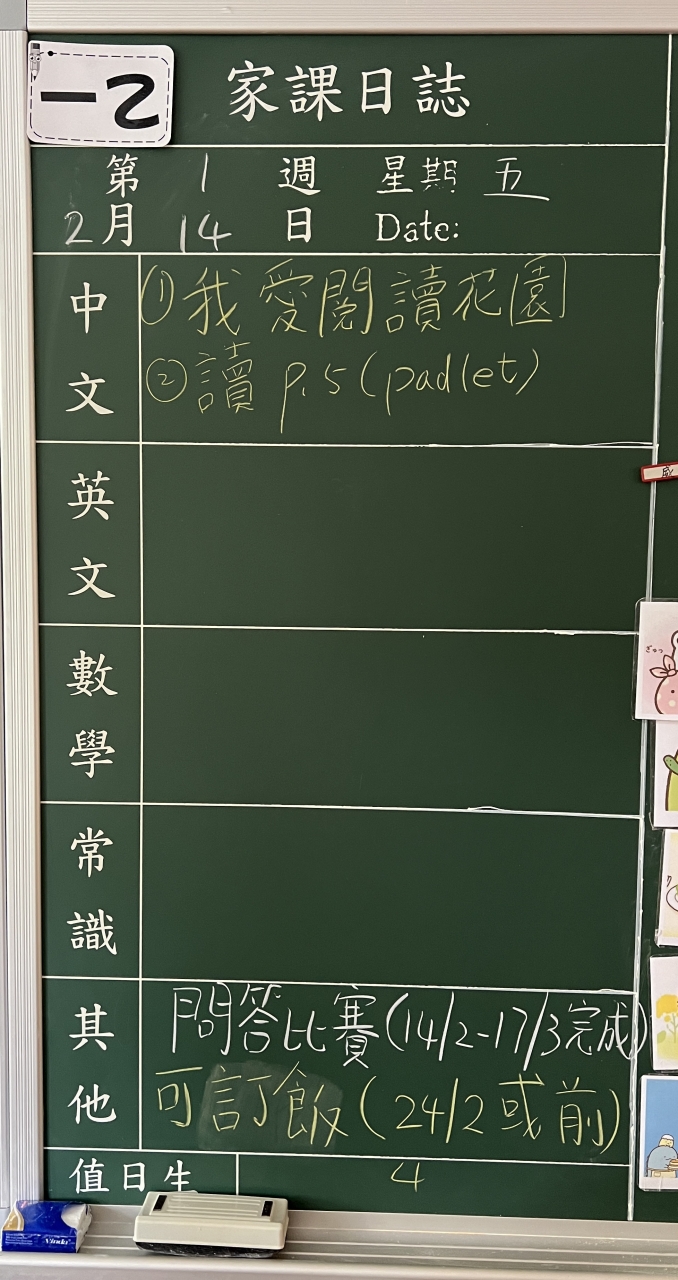 一乙
家課日誌
第 1 週 星期 五
2月 14 日 Date:
中文
①我愛閱讀花園
②讀 p.5(padlet)
英文
數學
常識
其他
問答比賽(14/2-17/3完成)
可訂飯(24/2或前)
值日生 4
Vinda
ぎゅっ